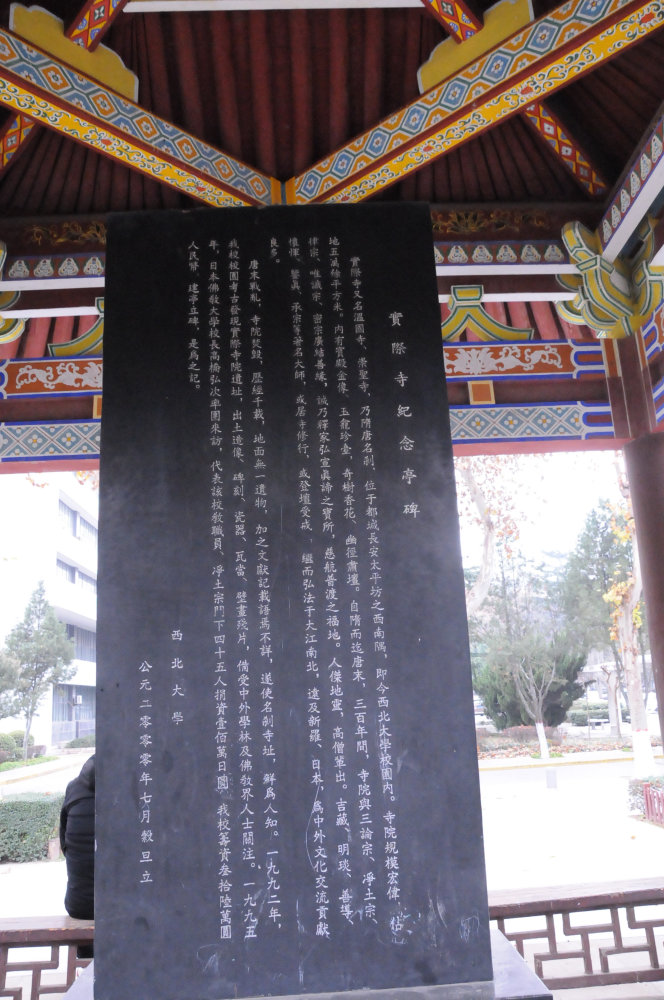 實際寺紀念亭碑
實際寺又名溫國寺、崇聖寺，乃隋唐名剎，位于都城長安太平坊之西南隅，即今西北大學校園內。寺院規模宏偉，佔
地五萬餘平方米。內有寶殿金像、玉龕珍臺、奇樹香花、幽徑肅壇。自隋而迄唐末，三百年間，寺院與三論宗、淨土宗、
律宗、唯識宗、密宗廣結善緣，誠乃釋家弘宣眞諦之寶所，慈航普渡之福地。人傑地靈，高僧輩出。吉藏、明琰、善導、
懷惲、鑒眞、承宗等著名大師，或居寺修行，或登壇受戒，繼而弘法于大江南北，遠及新羅、日本，爲中外文化交流貢獻
良多。
唐末戰亂，寺院焚毀，歷經千載，地面無一遺物，加之文獻記載語焉不詳，遂使名剎寺址，鮮爲人知。一九九二年，
我校校園考古發現實際寺院遺址，出土造像、碑刻、瓷器、瓦當、壁畫殘片，備受中外學林及佛教界人士關注。一九九五
年，日本佛教大學校長高橋弘次率團來訪，代表該校教職員、淨土宗門下四十五人捐資壹佰萬日圓，我校籌資叁拾陸萬圓
人民幣，建亭立碑，是爲之記。
西北大學
公元二〇〇〇年七月穀旦立